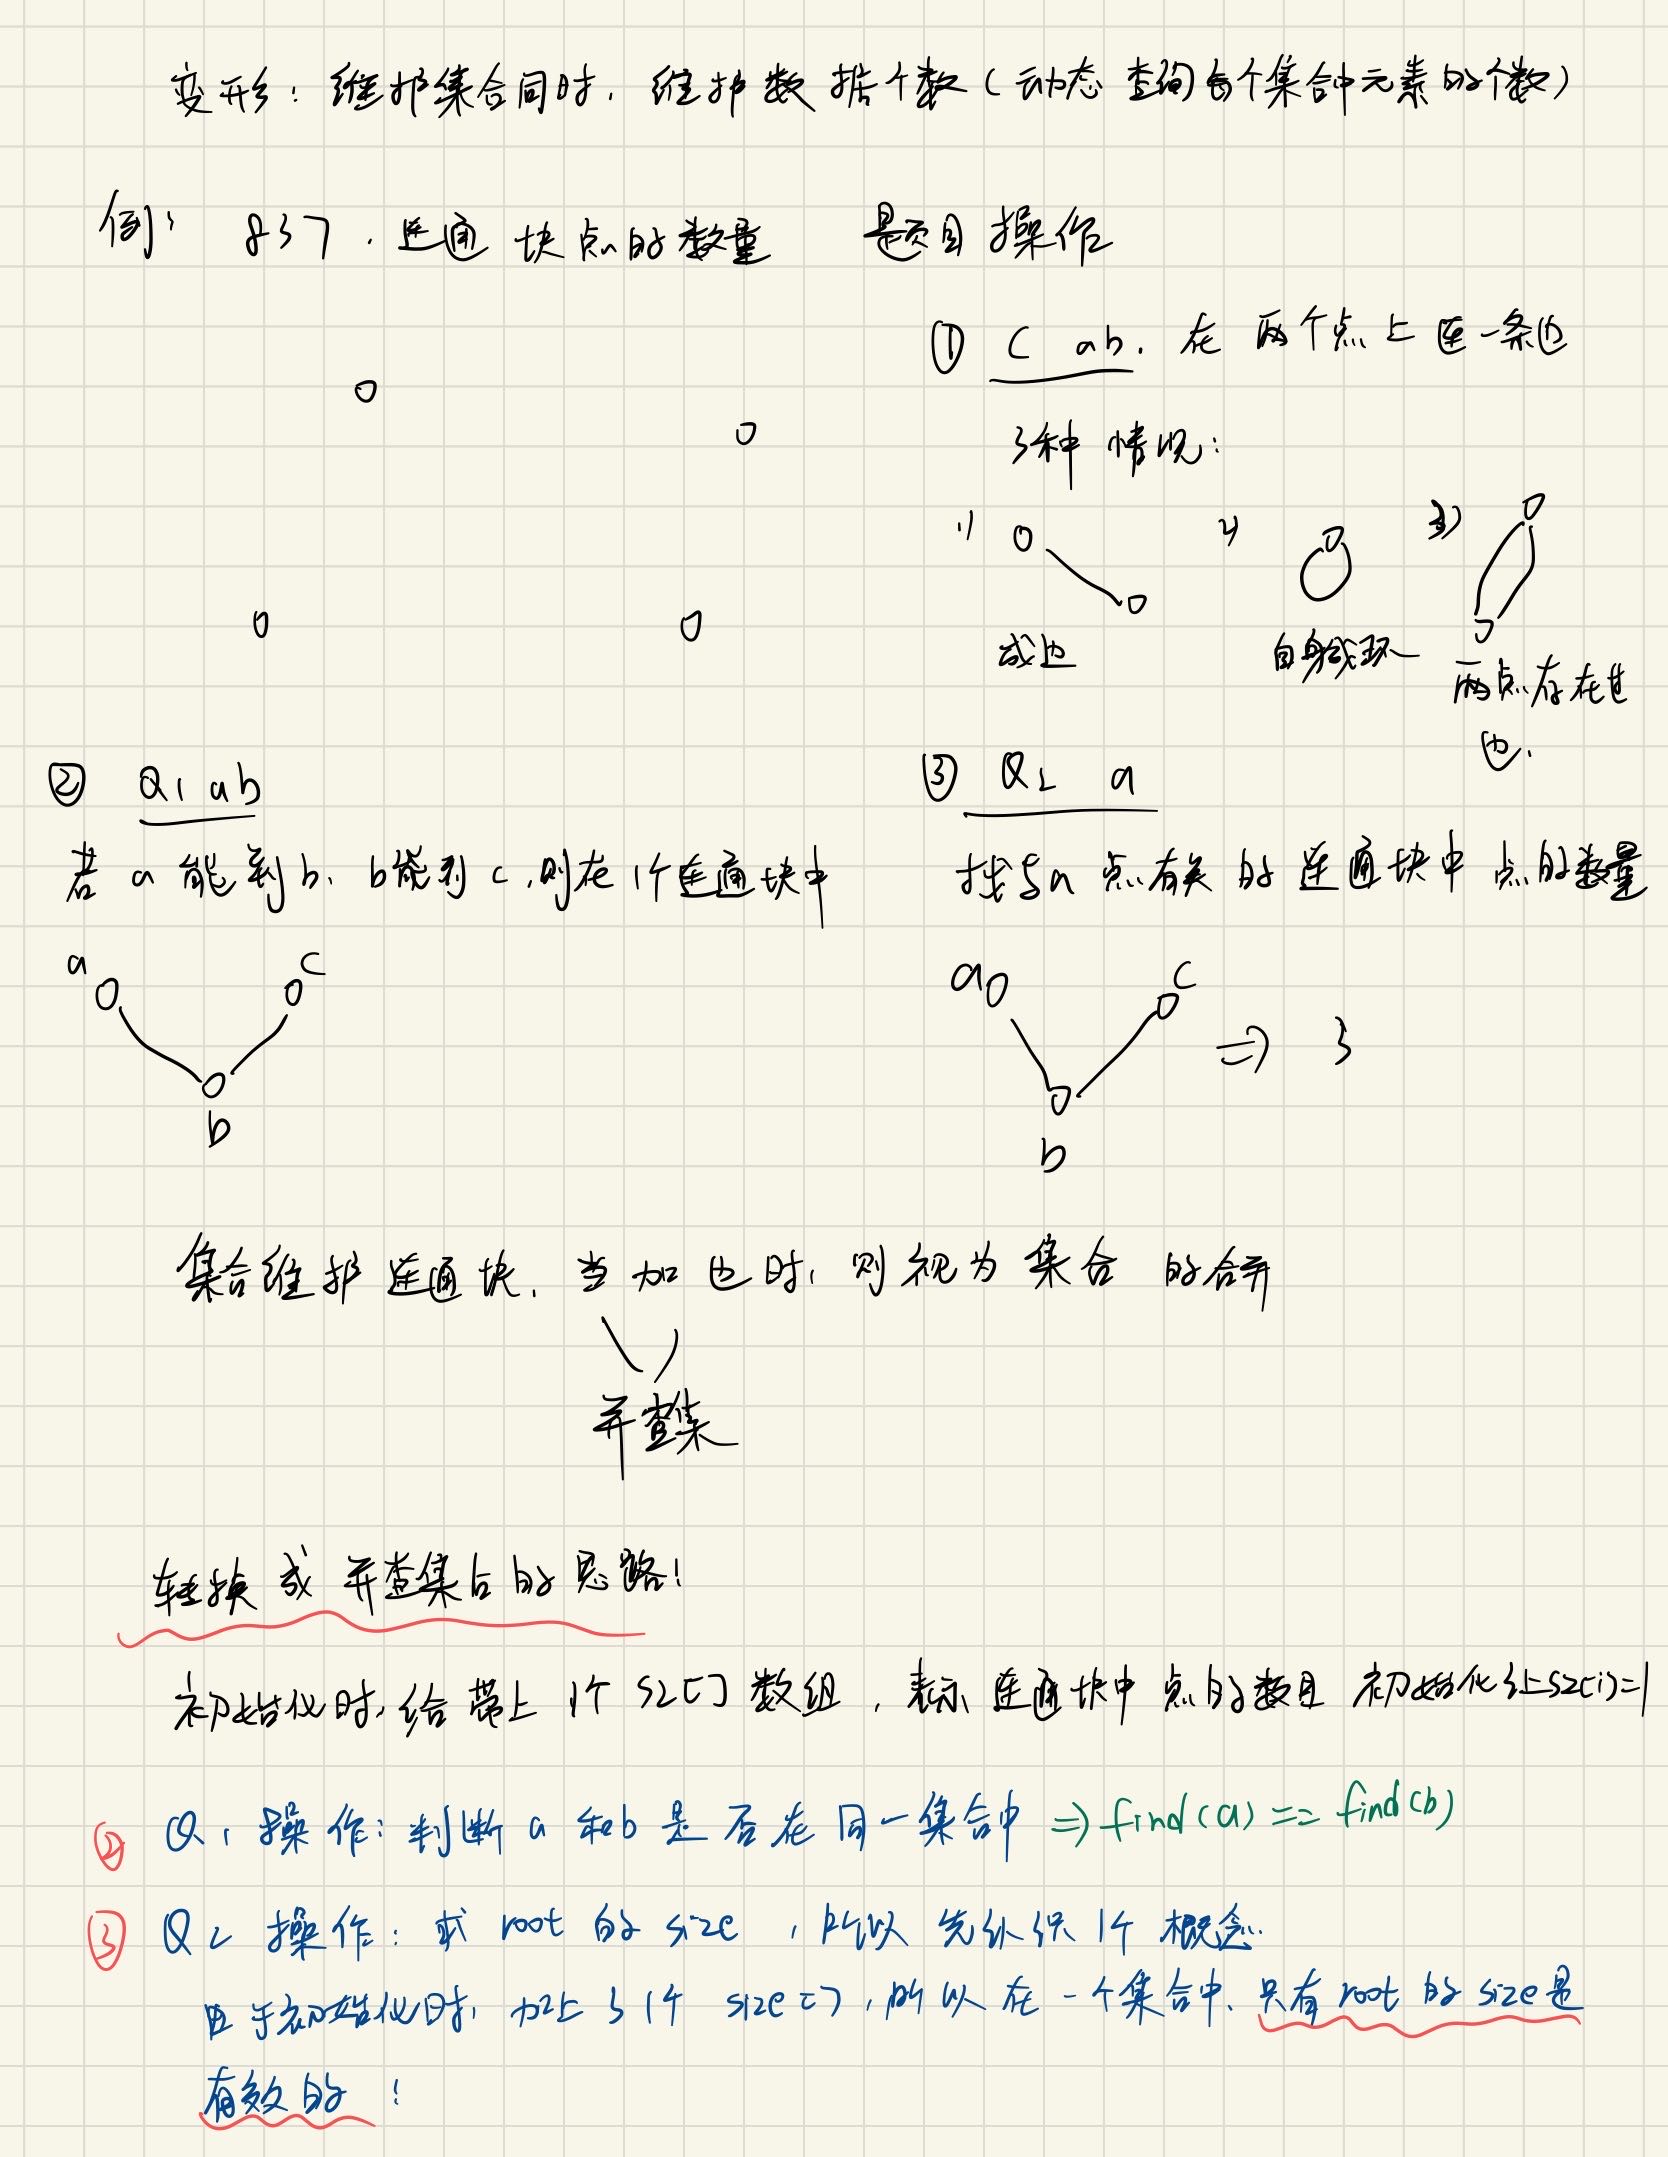 变形：维护集合同时，维护数据个数（动态查询每个集合中元素的个数）
例：837.连通块点的数量 题目操作
① C ab. 在两个点上连一条边
3种情况：
1) 2) 3)
成边 自身成环 两点存在过
边.
② Q1 ab
若a能到b、b能到c，则在1个连通块中
a c
b
③ Q2 a
找与a点有关的连通块中点的数量
a c
b
⇒ 3
集合维护连通块，当加边时，则视为集合的合并
并查集
转换成并查集后的思路！
初始化时，给带上1个sz[]数组，表示连通块中点的数目 初始化让sz[i]=1
② Q1操作：判断a和b是否在同一集合中 ⇒ find(a) == find(b)
③ Q2操作：求root的size，所以先纠纷1个概念.
由于初始化时，加上了1个size[]，所以在一个集合中、只有root的size是
有效的！